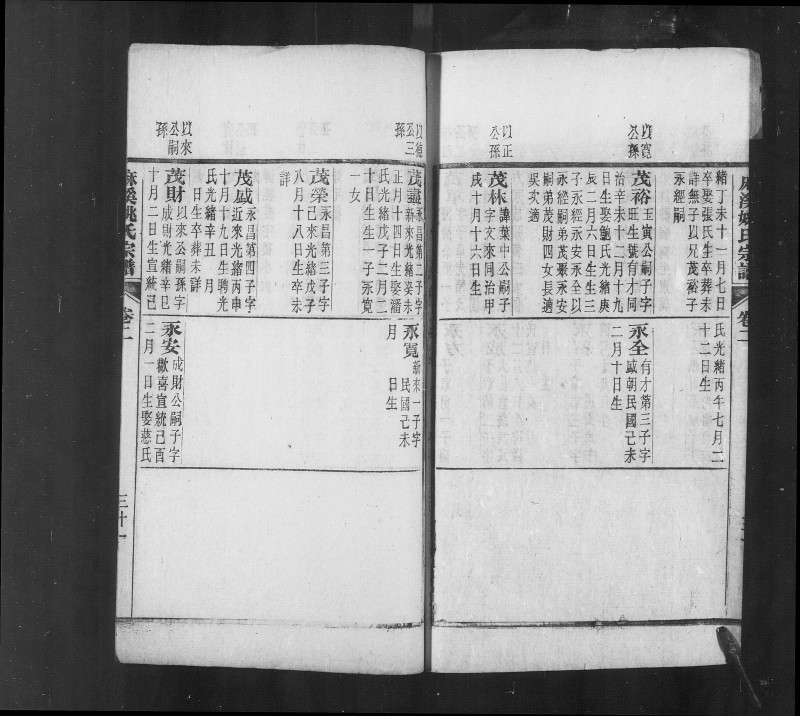 麻溪姚氏宗譜
卷二
緒丁未十一月七日
卒娶張氏生卒葬未
詳無子以兄茂裕子
永經嗣
以寬
公孫
茂裕
玉寅公嗣子字
旺生號有才同
治辛未十二月十九
日生娶鮑氏光緒庚
辰二月六日生生三
子永經永安永全以
永經嗣弟茂聚永安
嗣弟茂財四女長適
吳次適
以正
公孫
茂林
諱葉中公嗣子
字文來同治甲
戌十月十六日生
氏光緒丙午七月二
十二日生
永全
有才第三子字
咸朝民國己未
二月十日生
以德
公三
孫
茂盛
永昌第二子字
新來光緒癸未
正月十四日生娶潘
氏光緒戊子二月二
十日生生一子永寬
一女
茂榮
永昌第三子字
己來光緒戊子
八月十八日生卒未
詳
茂盛
永昌第四子字
近來光緒丙申
十月十九日生聘光
氏光緒辛丑 月
日生卒葬未詳
以來
公嗣
孫
茂財
以來公嗣孫字
成財光緒辛巳
十月二日生宣統己
永寬
新來一子字
民國己未
月 日生
永安
成財公嗣子字
歡喜宣統己酉
二月一日生娶慈氏
麻溪姚氏宗譜
卷二
三十一